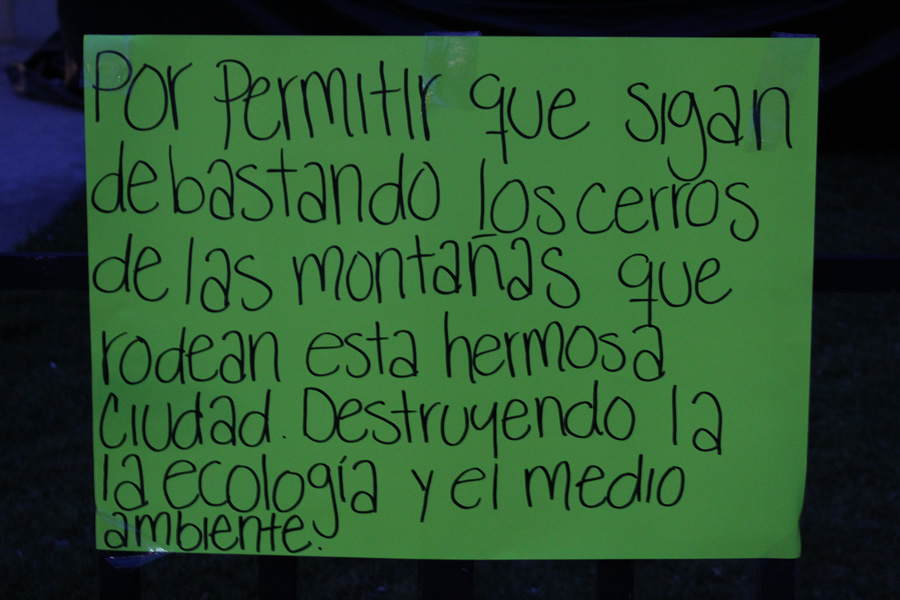 Por permitir que sigan
debastando los cerros
de las montañas que
rodean esta hermosa
Ciudad. Destruyendo la
la ecología y el medio
ambiente.